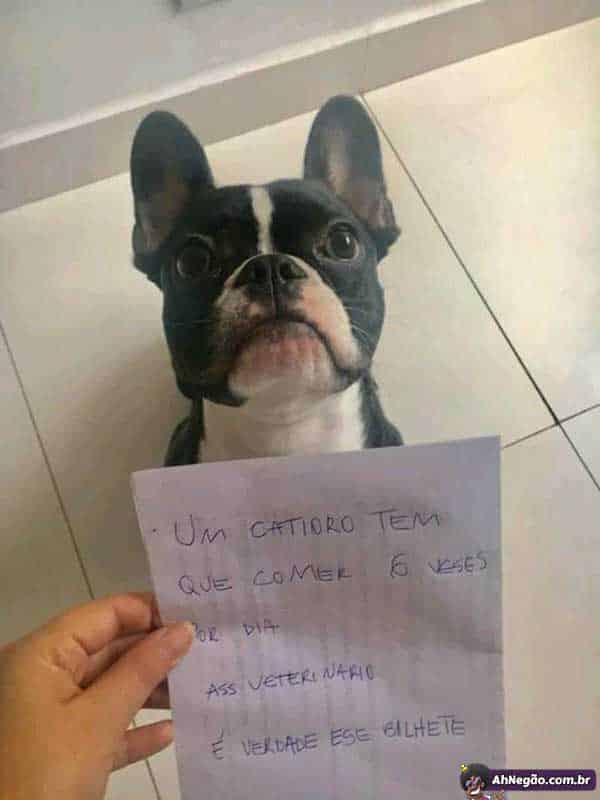 UM CATIORO TEM
QUE COMER 6 VESES
POR DIA
ASS VETERINARIO
É VERDADE ESE BILHETE
AhNegão.com.br